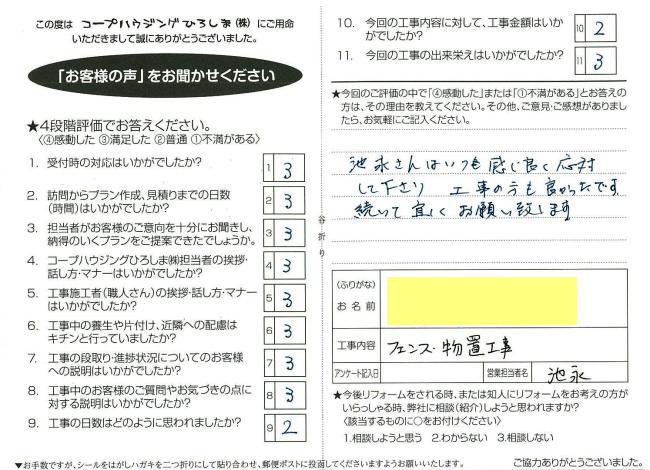 この度は コープハウジングひろしま(株) にご用命
いただきまして誠にありがとうございました。
「お客様の声」をお聞かせください
★4段階評価でお答えください。
〈④感動した ③満足した ②普通 ①不満がある〉
1. 受付時の対応はいかがでしたか? 1 3
2. 訪問からプラン作成、見積りまでの日数
(時間)はいかがでしたか? 2 3
3. 担当者がお客様のご意向を十分にお聞きし、
納得のいくプランをご提案できたでしょうか。 3 3
4. コープハウジングひろしま㈱担当者の挨拶・
話し方・マナーはいかがでしたか? 4 3
5. 工事施工者(職人さん)の挨拶・話し方・マナー
はいかがでしたか? 5 3
6. 工事中の養生や片付け、近隣への配慮は
キチンと行っていましたか? 6 3
7. 工事の段取り・進捗状況についてのお客様
への説明はいかがでしたか? 7 3
8. 工事中のお客様のご質問やお気づきの点に
対する説明はいかがでしたか? 8 3
9. 工事の日数はどのように思われましたか? 9 2
▼お手数ですが、シールをはがしハガキを二つ折りにして貼り合わせ、郵便ポストに投函してくださいますようお願いいたします。
谷折り
10. 今回の工事内容に対して、工事金額はいか
がでしたか? 10 2
11. 今回の工事の出来栄えはいかがでしたか? 11 3
★今回のご評価の中で「④感動した」または「①不満がある」とお答えの
方は、その理由を教えてください。その他、ご意見・ご感想がありました
ら、お気軽にご記入ください。
池永さんはいつも感じ良く応対
して下さり 工事の方も良かったです
続いて宜しくお願い致します
(ふりがな)
お名前
工事内容 フェンス・物置工事
アンケート記入日 営業担当者名 池永
★今後リフォームをされる時、または知人にリフォームをお考えの方が
いらっしゃる時、弊社に相談(紹介)しようと思われますか?
〈該当するものに○をお付けください〉
1.相談しようと思う 2.わからない 3.相談しない
ご協力ありがとうございました。